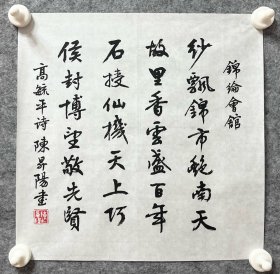 錦綸會館
紗飄錦市貌南天
故里香雲盛百年
石接仙機天上巧
侯封博望敬先賢
高毓平诗陳昇陽書